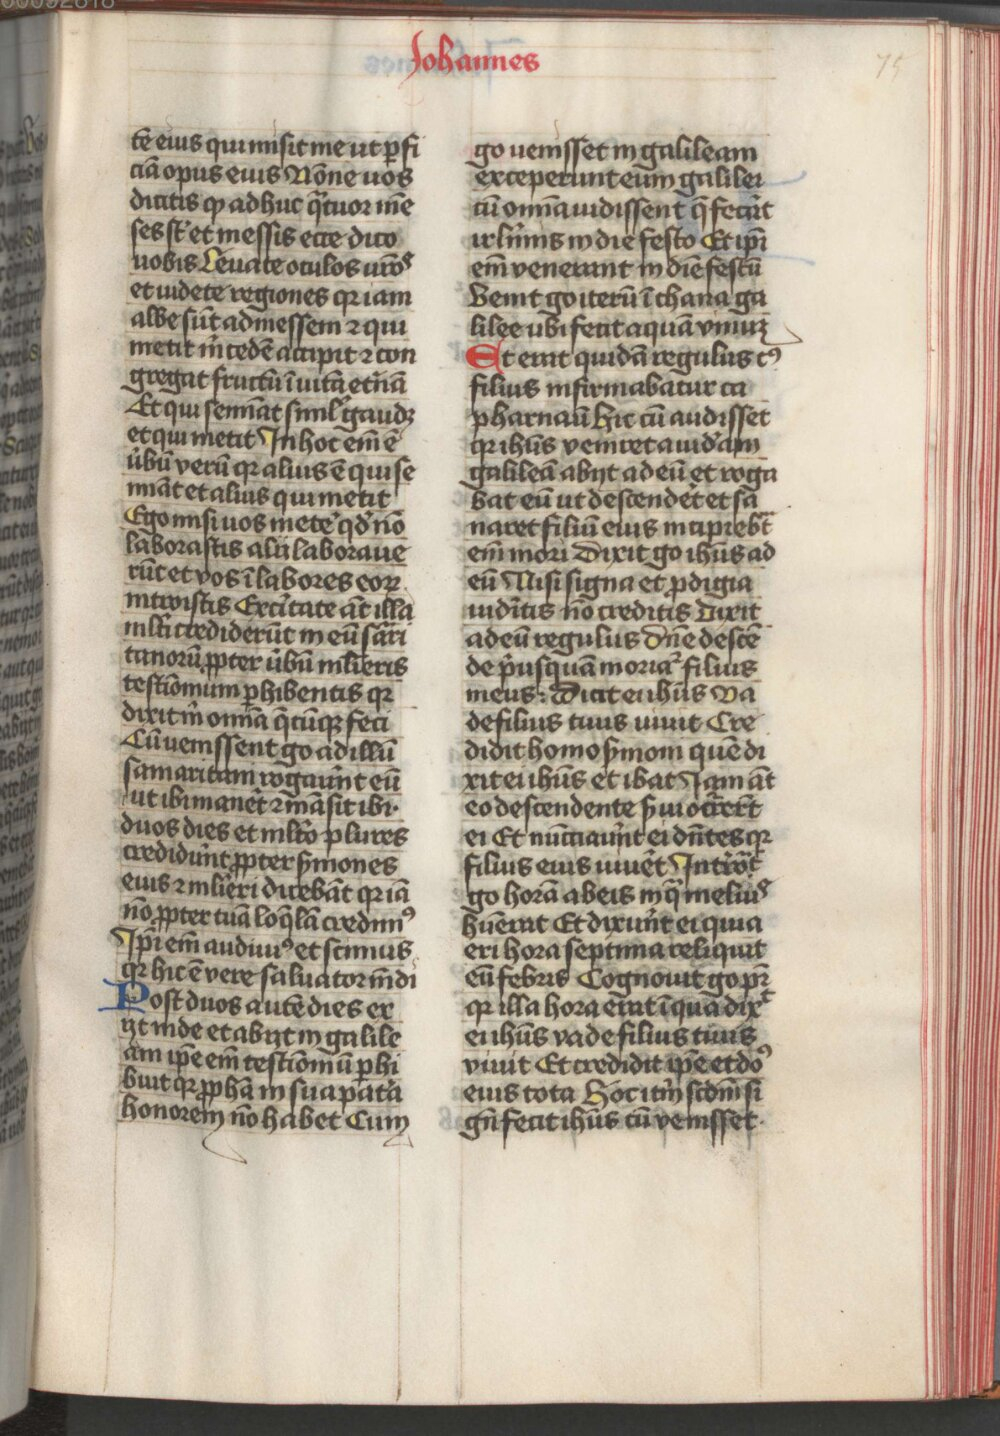 Johannes
75
tē eius qui misit me ut ꝑfi
ciā opus eius Nōne uos
dicitis ꝙ adhuc q̄tuor mē
ses st̄ et messis ecce dico
uobis Leuate oculos vr̄os
et uidete regiones qꝛ iam
albe sūt ad messem ⁊ qui
metit m̄cedē accipit ⁊ con
gregat fructū ī uitā et̄nā
Et qui semīat simĺ gaudꝫ
et qui metit In hoc em̄ ē
ūbū verū qꝛ alius ē qui se
mīat et alius qui metit
Ego misi uos met̓e qd̓ nō
laborastis alii laboraue
rūt et vos ī labores eoꝝ
introistis Ex ciuitate aūt illa
ml̄ti crediderūt in eū sam̄ri
tanorū ꝓpter ūbū ml̄ieris
testiōmum ꝑhibentis qꝛ
dixit m̄ omīa q̄cūqꝫ feci
Cū uenissent ḡo ad illū
samaritani rogauer̄t eū
ut ibi maner̄t ⁊ māsit ibi
duos dies et ml̄to plures
credidūnt ꝓpter ẜmones
eius ⁊ ml̄ieri dicebāt qꝛ iā
nō ꝓpter tuā loq̄lā credim⁹
Ip̄i em̄ audiui⁹ et scimus
qꝛ hic ē vere saluator mūdi
Post duos autē dies ex
ijt inde et abijt in galile
am ip̄e em̄ testiōmū ꝑhi
buit qꝛ ꝓpha in sua pat̄a
honorem nō habet Cum
go uenisset in galileam
exceperunt eum galilei
cū omīa uidissent q̄ fecer̄t
irl̄imis in die festo Et ip̄i
em̄ venerant in diē festū
Venit ḡo iterū ī chana ga
lilee ubi fecit aquā vinuꝫ
Et erat quidā regulus c⁹
filius infirmabatur ca
pharnaū Hic cū audisset
qꝛ ih̄us veniret a iud̓a in
galileā abijt ad eū et roga
bat eū ut descender̄t et sa
naret filiū eius incipiebat
em̄ mori Dixit ḡo ih̄us ad
eū Nisi signa et ꝓdigia
uid̓itis nō creditis Dixit
ad eū regulus Dn̄e descē
de pͥusquā moriat̉ filius
meus: Dicit ei ih̄us Va
de filius tuus uiuit Cre
didit homo ẜmoni quē di
xit ei ih̄us et ibat Iam aūt
eo descendente ẜui occurrer̄t
ei Et nūciauer̄t ei dicn̄tes qꝛ
filius eius uiuer̄t Introg̓t
go horā ab eis in q̄ meliu⁹
hūerat Et dixer̄t ei quia
eri hora septima reliquit
eū febris Cognouit ḡo pr̄
qꝛ illa hora erat ī qua dixit
ei ih̄us vade filius tuus
viuit Et credidit ip̄e et do⁹
eius tota Hoc itm̄ scd̄m si
gn̄ fecit ih̄us cū venisset